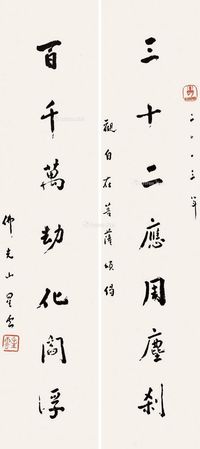 二〇〇五年
三十二應周塵剎
觀自在菩薩頌偈
百千萬劫化閻浮
佛光山星雲